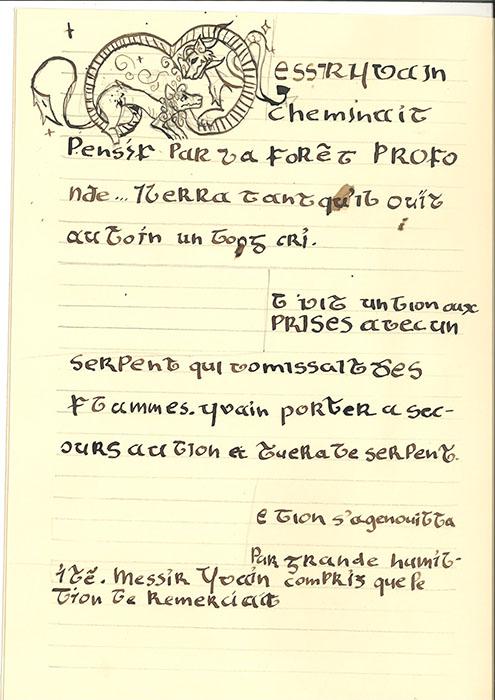 Messir Yvain
cheminait
Pensif Par la forêt profo
nde... Il erra tant qu'il ouït
au loin un long cri.
l vit un lion aux
prises avec un
serpent qui vomissait des
flammes. Yvain porter a sec-
ours au lion et tuera le serpent.
e lion s'agenouilla
Par grande humil-
ité. Messir Yvain comprit que le
lion le remerciait